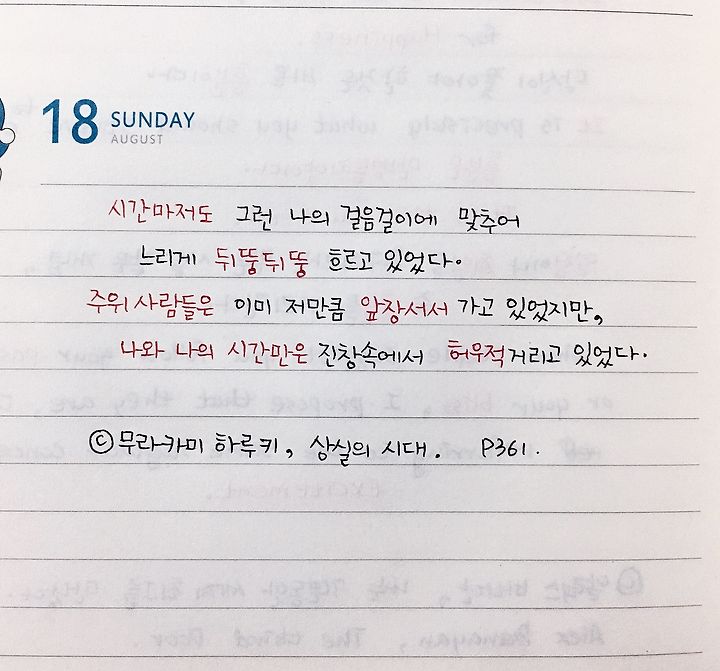 18 SUNDAY
AUGUST
시간마저도 그런 나의 걸음걸이에 맞추어
느리게 뒤뚱뒤뚱 흐르고 있었다.
주위 사람들은 이미 저만큼 앞장서서 가고 있었지만,
나와 나의 시간만은 진창속에서 허우적거리고 있었다.
ⓒ무라카미 하루키, 상실의 시대. P361.